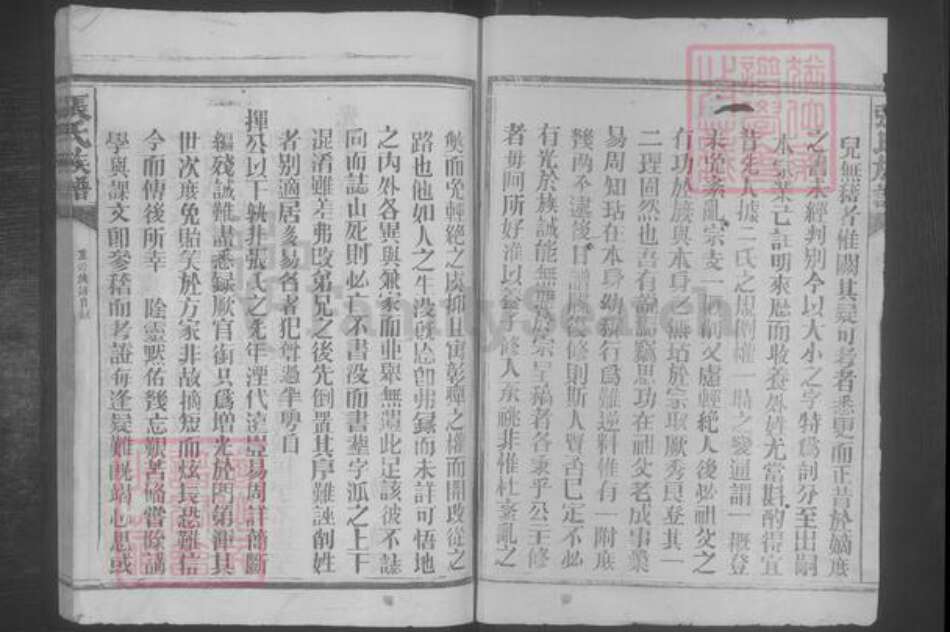 兒無籍者惟闕其疑可考者悉更而正昔於嫡庶
之譜未經判別今以大小之字特爲剖分至出嗣
本宗業已註明來歷而收養外姓尤當斟酌得宜
昔先人據二氏之規例權一時之變通謂一概登
來從紊亂宗支一概削又慮輕絕人後必祖父之
有功於族與本身之無玷於宗取厥秀良登其一
二理固然也吾有說焉竊思功在祖父老成事業
易周知玷在本身幼穉行爲難逆料惟有一附庶
幾兩不遠後日譜牒經修則斯人賢否已定不必
有光於族誠能無無於宗呈稿者各秉乎公主修
者毋阿所好准以義子修入承祧非惟杜紊亂之
弊而免輕絕之虞抑且寓彰癉之權而開改從之
路也他如人之生沒戤忌卽弗錄而未詳可悟地
之內外各異與兼家而亞舉無濫此足該彼不誌
向而誌山死則必亡不書没而書塟字派之上下
混淆雖差弗改第兄之後先倒置其序難誣削姓
者別適居多易名者犯諱過半旁自
揮公以下孰非張氏之先年湮代遠豈易周詳簡斷
編殘誠難盡悉録厥官銜只爲增光於門第渾其
世次庶免貽笑於方家非故摘短而炫長恐難信
今而傳後所幸 陰靈默佑幾忘艱苦備嘗除講
學與課文卽參稽而考證每逢疑難旣竭心思或
張氏族譜